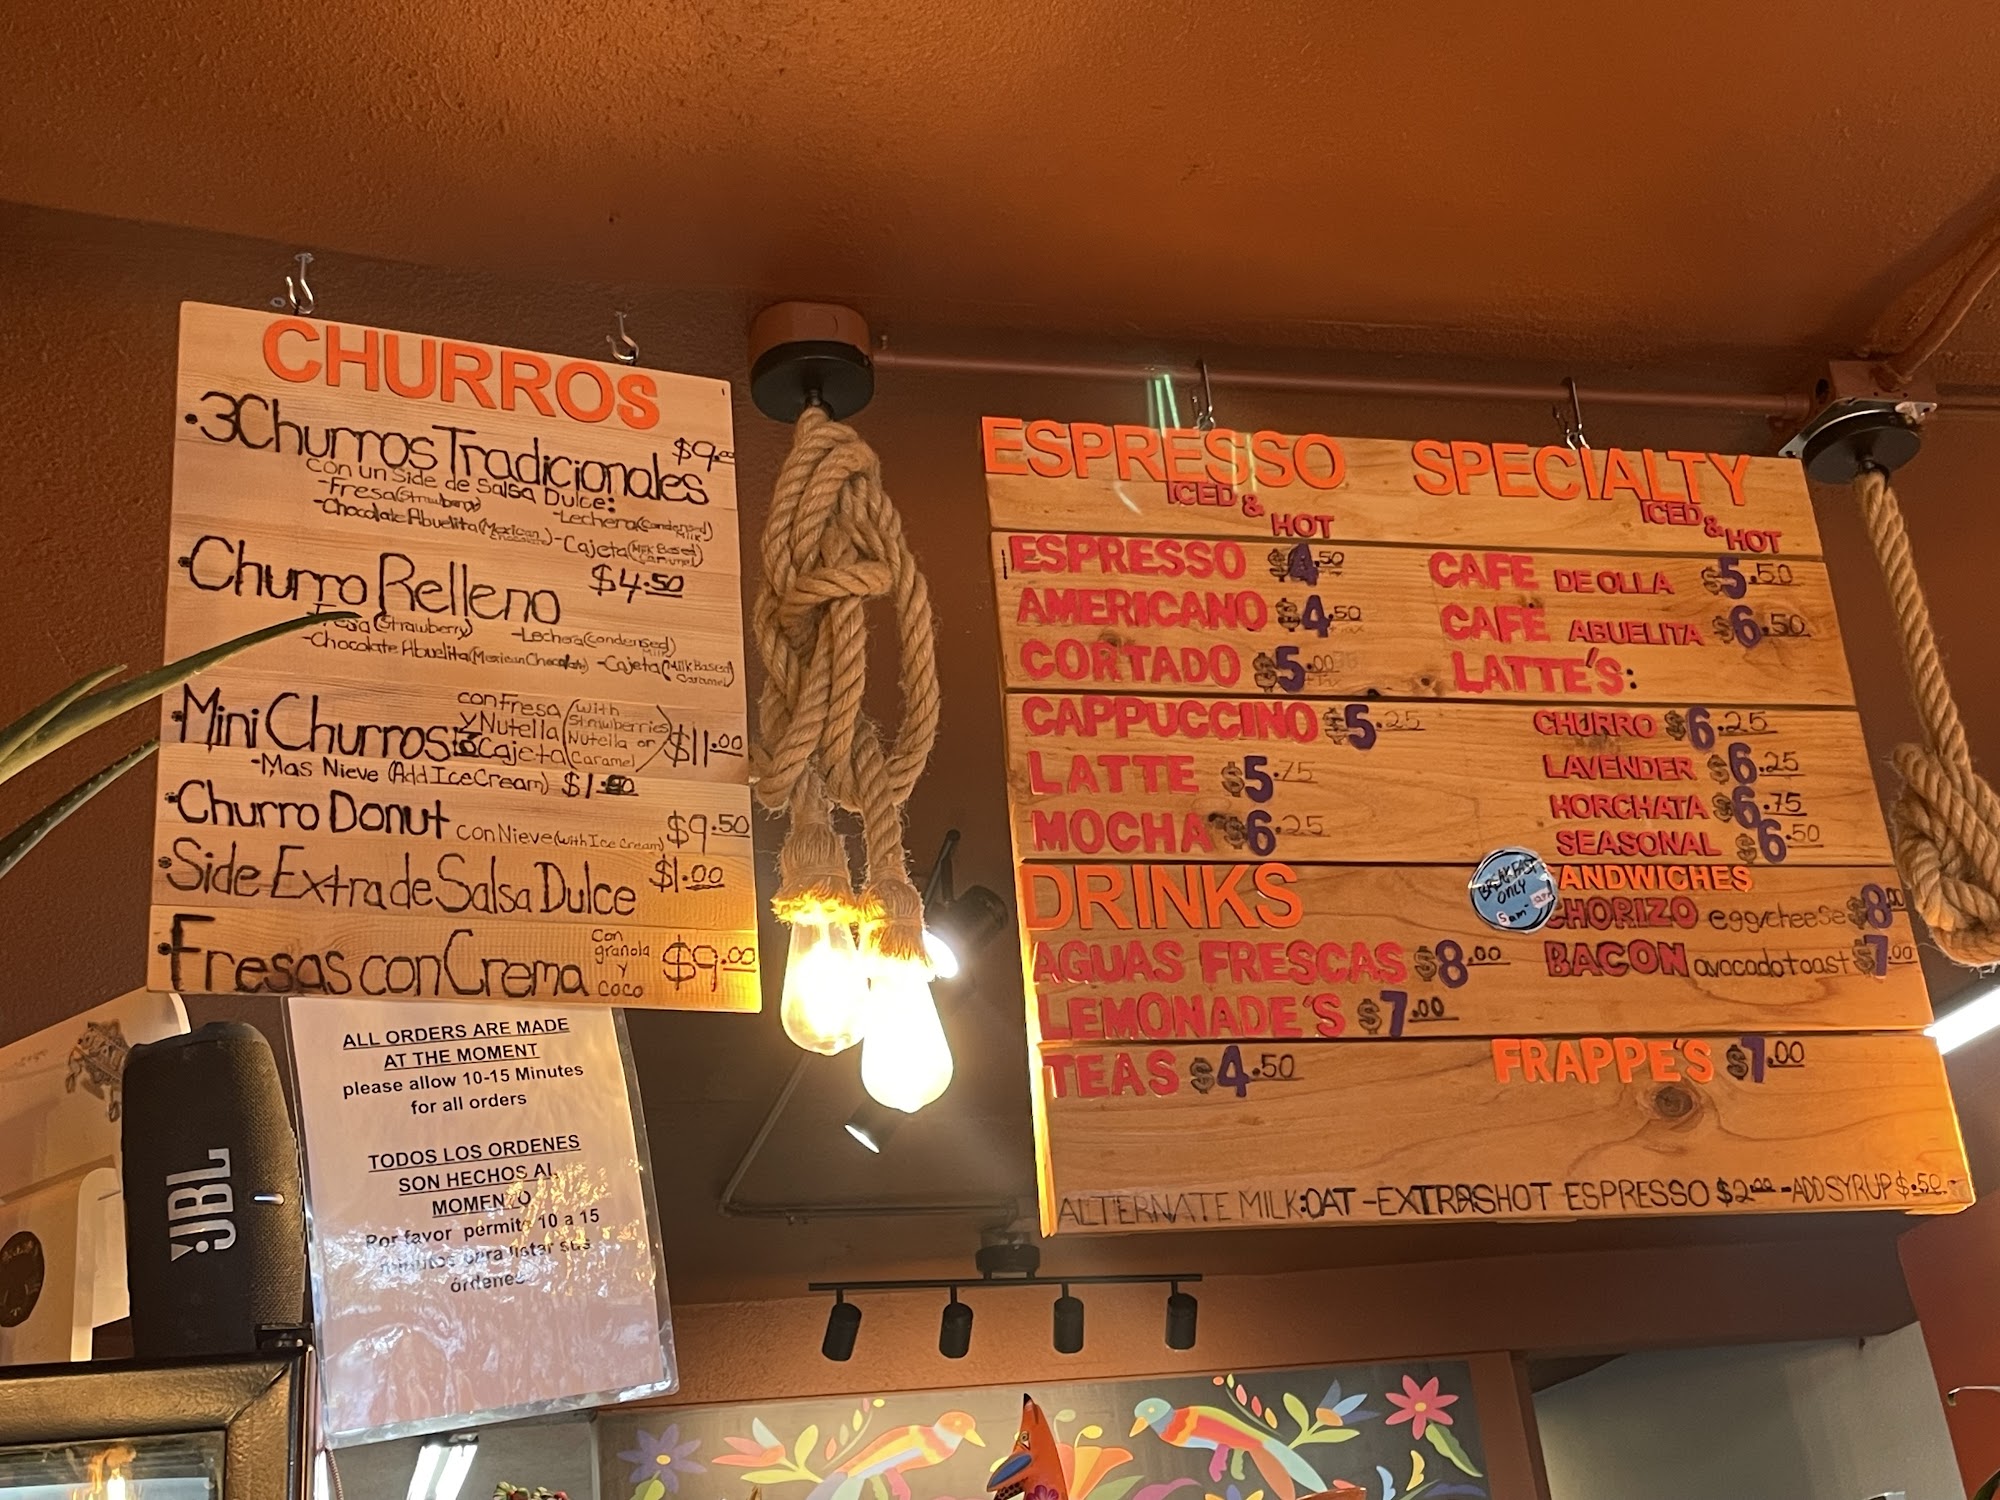 CHURROS
•3 Churros Tradicionales $9.00
con un Side de Salsa Dulce:
-Fresa (Strawberry) -Lechera (Condensed Milk)
-Chocolate Abuelita (Mexican Chocolate) -Cajeta (Milk Based Caramel)
•Churro Relleno $4.50
Fresa (Strawberry) -Lechera (condensed Milk)
-Chocolate Abuelita (Mexican Chocolate) -Cajeta (Milk Based Caramel)
•Mini Churros con Fresa y Nutella ó Cajeta (with Strawberries Nutella or Caramel) $11.00
-Mas Nieve (Add Ice Cream) $1.50
•Churro Donut con Nieve (with Ice Cream) $9.50
•Side Extra de Salsa Dulce $1.00
•Fresas con Crema con granola y coco $9.00
ALL ORDERS ARE MADE
AT THE MOMENT
please allow 10-15 Minutes
for all orders
TODOS LOS ORDENES
SON HECHOS AL
MOMENZO
Por favor permite 10 a 15
minutos para listar sus
órdenes
JBL
ESPRESSO
ICED & HOT
ESPRESSO $4.50
AMERICANO $4.50
CORTADO $5.00
CAPPUCCINO $5.25
LATTE $5.75
MOCHA $6.25
DRINKS
AGUAS FRESCAS $8.00
LEMONADE'S $7.00
TEAS $4.50
SPECIALTY
ICED & HOT
CAFE DE OLLA $5.50
CAFE ABUELITA $6.50
LATTE'S:
CHURRO $6.25
LAVENDER $6.25
HORCHATA $6.75
SEASONAL $6.50
BREAKFAST
ONLY
5am-
ANDWICHES
CHORIZO egg/cheese $8.00
BACON avocado toast $7.00
FRAPPE'S $7.00
ALTERNATE MILK:OAT -EXTRA SHOT ESPRESSO $2.00 -ADD SYRUP $.50